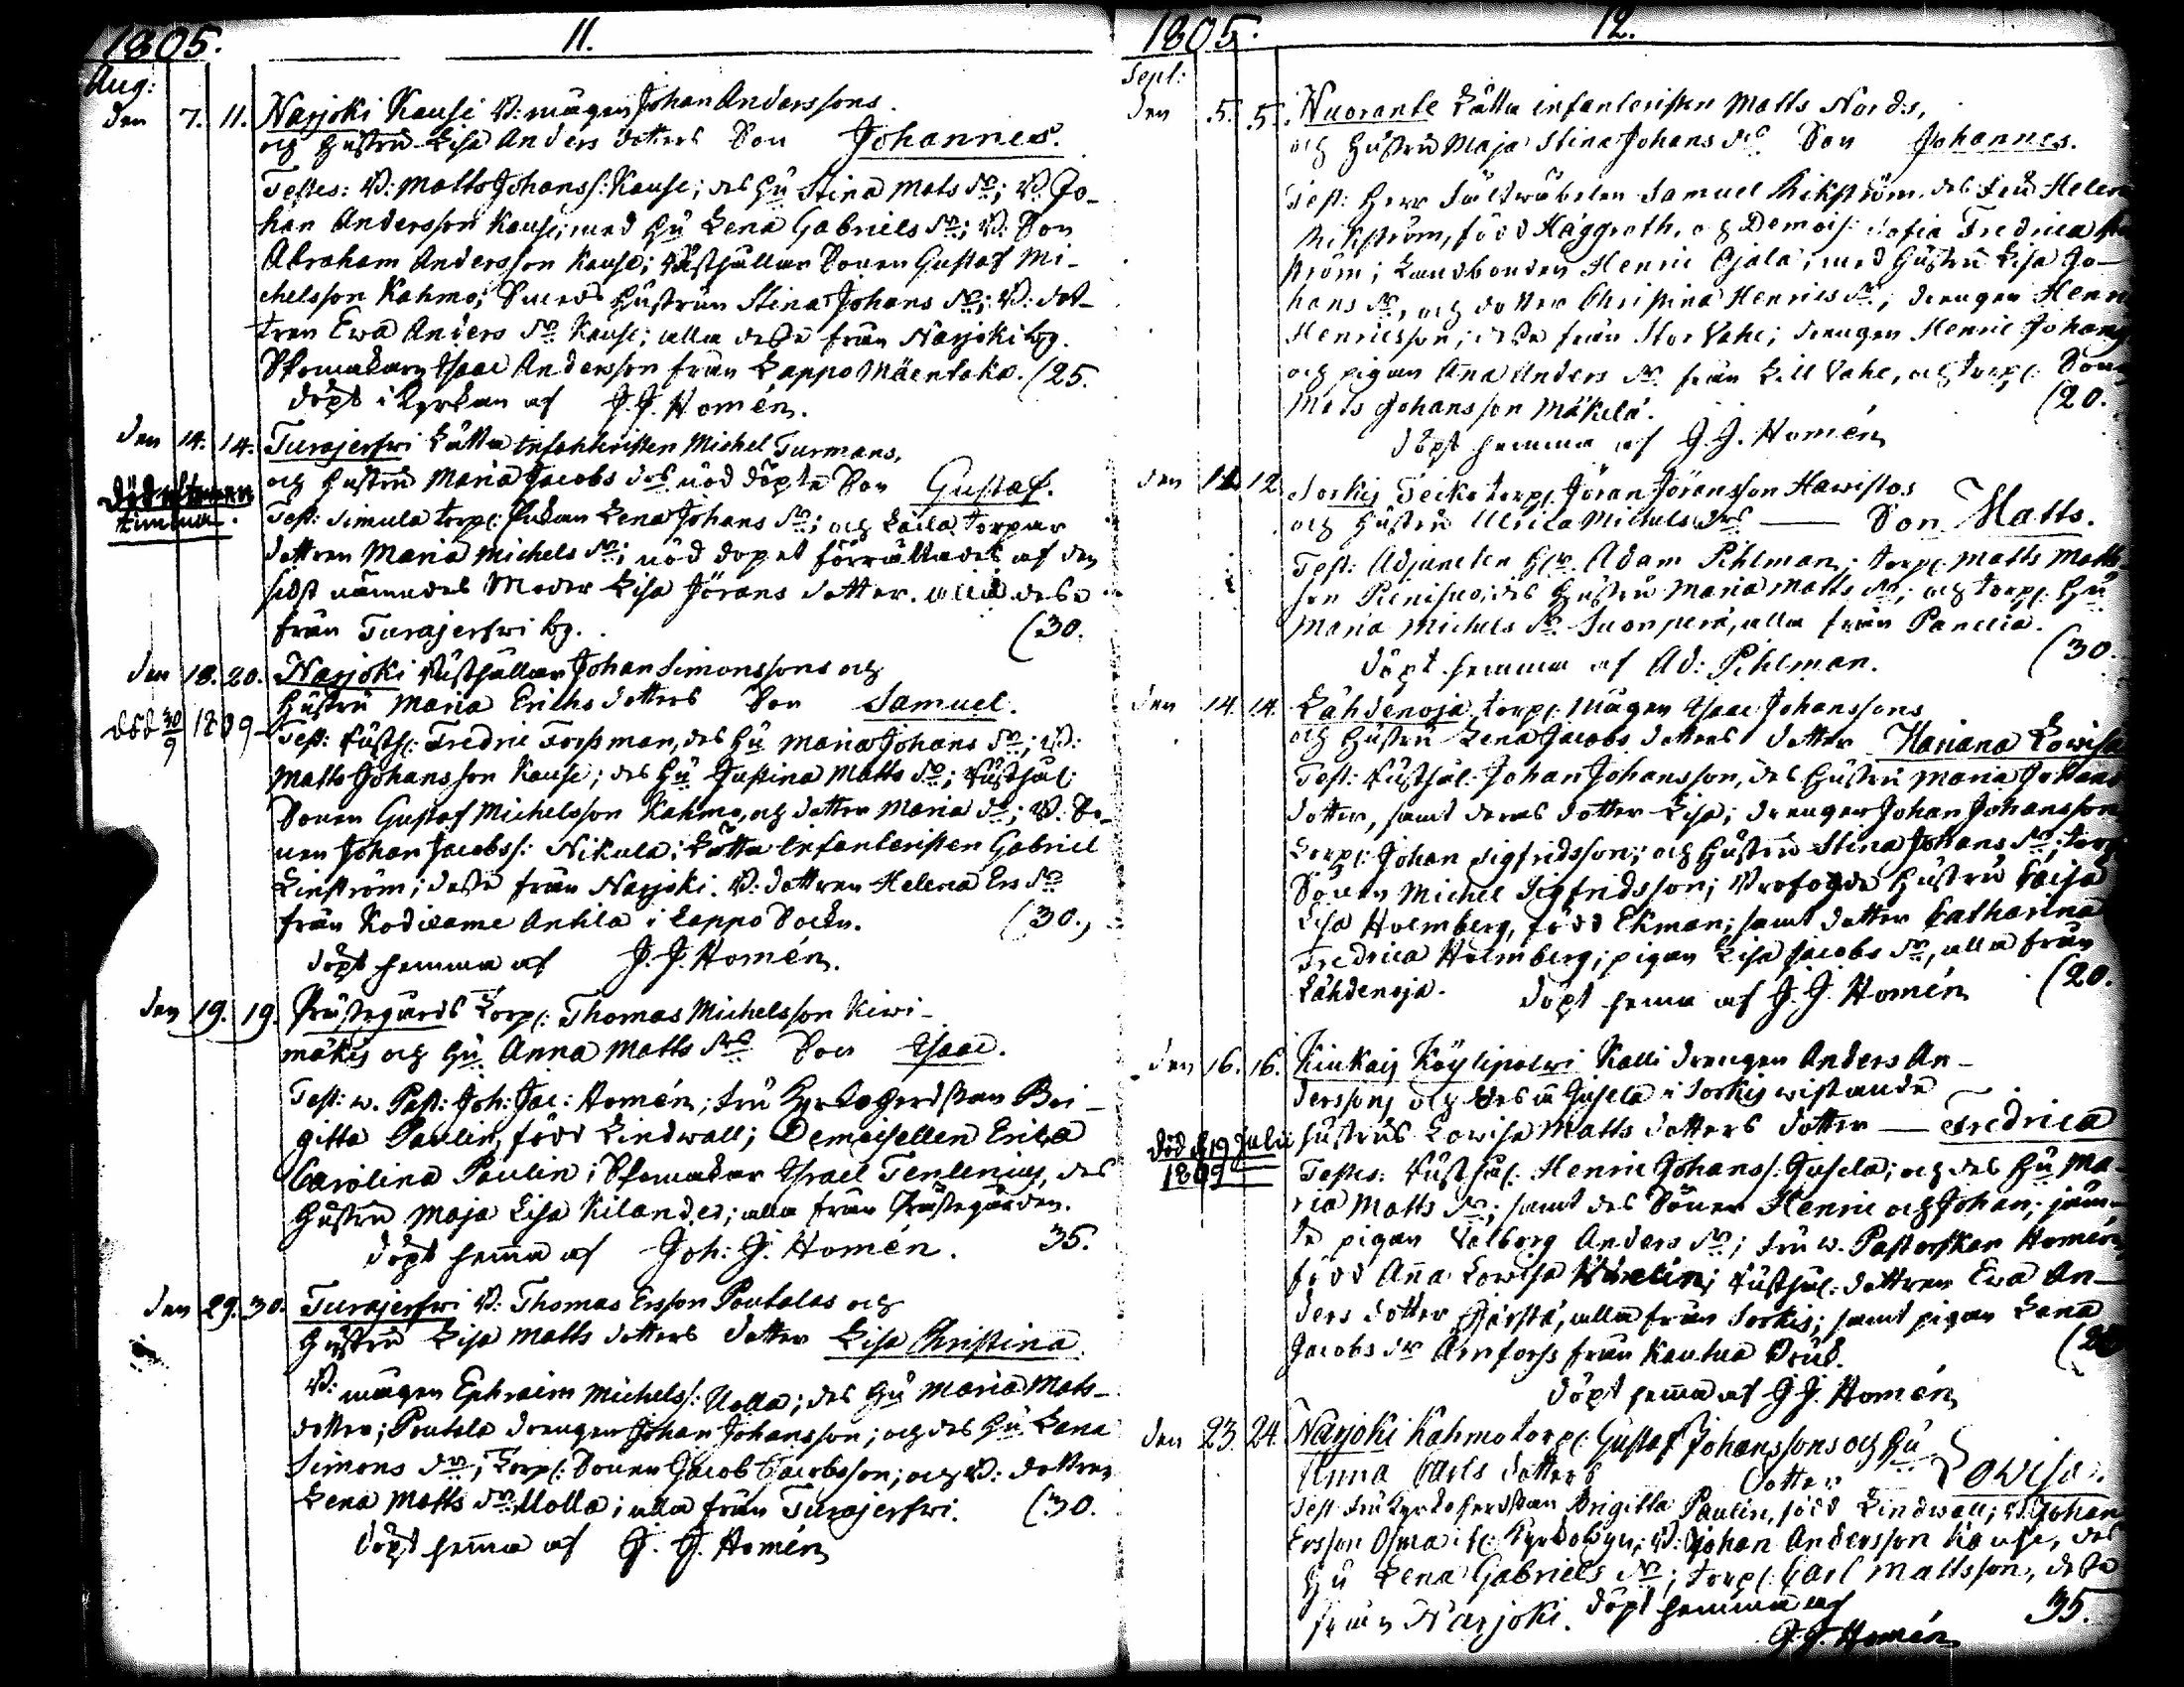 1805. 11.
Aug:
den 7. 11. Narjoki Kause B: mågen Johan Anderssons
och hustru Lisa Anders dotters Son Johannes.
Testes: B: Matts Johanss: Kause; des hu Stina Mats dr; B: Jo-
han Andersson Kause, med hu Lena Gabriels dr; B: Son
Abraham Andersson Kause; Rusthållar Sonen Gustaf Mi-
chelsson Kahmo; Smeds hustrun Stina Johans dr; B: dot-
tren Ewa Anders dr Kause; alla desse från Narjoki by.
Skomakarn Isaac Andersson från Lappo Mäentaka. (25.
döpt i Kyrkan af J. J. Homén.
den 14. 14. Turajerfwi Lätta infanteristen Michel Turmans,
och hustru Maria Jacobs drs nöd döpte Son Gustaf.
död
timma.
Test: Simula torp: Enkan Lena Johans dr; och Laila torpar
dottren Maria Michels dr; nöd dopet förrättades af den
sidst nämndes Moder Lisa Jörans dotter. alla desse
från Turajerfwi by. (30.
den 18. 20. Narjoki Rusthållar Johan Simonssons och
hustru Maria Erichs dotters Son Samuel.
död 30/9 1809
Test: Rusth: Fredric Forssman, des hu Maria Johans dr; B:
Matts Johansson Kause; des hu Justina Matts dr; Rusthål:
Sonen Gustaf Michelsson Kahmo, och dotter Maria dr; B: So-
nen Johan Jacobss: Nikula; Lätta Infanteristen Gabriel
Linström; desse från Narjoki. B: dottren Helena Ers dr
från Kodisame Antila i Lappo Sockn. (30.
döpt hemma af J. J. Homén.
den 19. 19. Prästegårds Torp: Thomas Michelsson Kiwi-
mäkis och hu Anna Matts drs Son Isaac.
Test: w. Past: Joh: Jac: Homén; fru Kyrkoherdskan Bri-
gitta Paulin, född Lindwall; Demoisellen Erica
Carolina Paulin; Skomakar Israel Tenlenius, des
hustru Maja Lisa Kilander; alla från Prästegården.
döpt hema af Joh: J. Homén. 35.
den 29. 30. Turajerfwi B: Thomas Ersson Poutalas och
hustru Lisa Matts dotters dotter Lisa Christina
B: mågen Ephraim Michelss: Uolla; des hu Maria Mats-
dotter; Poutala drengen Johan Johansson; och des hu Lena
Simons dr; Torp: Sonen Jacob Jacobsson; och B: dottren
Lena Matts dr Uolla; alla från Turajerfwi. (30.
döpt hema af J. J. Homén
1805. 12.
Sept:
den 5. 5. Wuorante Lätta infanteristen Matts Nords,
och hustru Maja Stina Johans drs Son Johannes.
Test: Herr Fältwäbelen Samuel Rikström. des fru Helena
Rikström, född Häggroth, och Demois: Sofia Fredrica
ström; Landbonden Henric Ojala, med hustru Lisa Jo-
hans dr, och dotter Christina Henrics dr, drengen Henric
Henricsson; desse från Stor Vahe; drengen Henric Johans
och pigan Ana Anders dr från Lill Vahe, och torp: Son
Mats Johansson Mäkelä. (20.
döpt hemma af J. J. Homén
den 12. 12 Sorkis Teiko torp: Jöran Jöransson Hawistos
och hustru Ulrica Michels drs Son Matts.
Test: Adjuncten Hr. Adam Pihlman; torp: Matts Matts-
son des hustru Maria Matts dr; och torp: hu
Maria Michels dr Suonperä, alla från Panelia.
döpt hemma af Ad: Pihlman. (30.
den 14. 14. Lähdenoja torp: mågen Isaac Johanssons
och hustru Lena Jacobs dotters dotter Mariana Lowisa
Test: Rusthål: Johan Johansson, des hustru Maria Johans
dotter, samt deras dotter Lisa; drengen Johan Johansson
Torp: Johan Sigfridsson; och hustru Stina Johans dr; torp:
Sonen Michel Sigfridsson; Profogde hustru Caisa
Lisa Holmberg, född Ekman; samt dotter Catharina
Fredrica Holmberg; pigan Lisa Jacobs dr, alla från
Lähdenoja. döpt hema af J. J. Homén (20.
den 16. 16. Kiukais Köylipolwi Kalli drengen Anders An-
derssons och Jusela i Sorkis wistande
död d. 19 Julii
1809
hustrus Lowisa Matts dotters dotter Fredrica
Testes: Rusthål: Henric Johanss: Jusela; och des hu Ma-
ria Matts dr; samt des Söner Henric och Johan; jem-
te pigan Valborg Anders dr; fru w. Pastorskan Homén
född Ana Lowisa Rusthål: dottren Ewa An-
ders dotter alla från Sorkis; samt pigan Lena
Jacobs dr Arnforss från Kautua Bruk.
döpt hema af J. J. Homén
den 23. 24. Narjoki Kahmo torp: Gustaf Johanssons och hu
Anna Carls dotters dotter Lowisa.
Test: fru Kyrkoherdskan Brigitta Paulin, född Lindwall; B: Johan
Ersson Kyrkobyn; B: Johan Andersson Kause, des
hu Lena Gabriels dr; torp: Carl Mattsson, desse
från Narjoki. döpt hemma af 35.
J. J. Homén